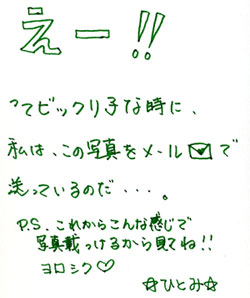 えー!!
ってビックリ子な時に、
私は、この写真をメール✉で
送っているのだ・・・。
P.S. これからこんな感じで
写真載っけるから見てね!!
ヨロシク♡
☆ひとみ☆